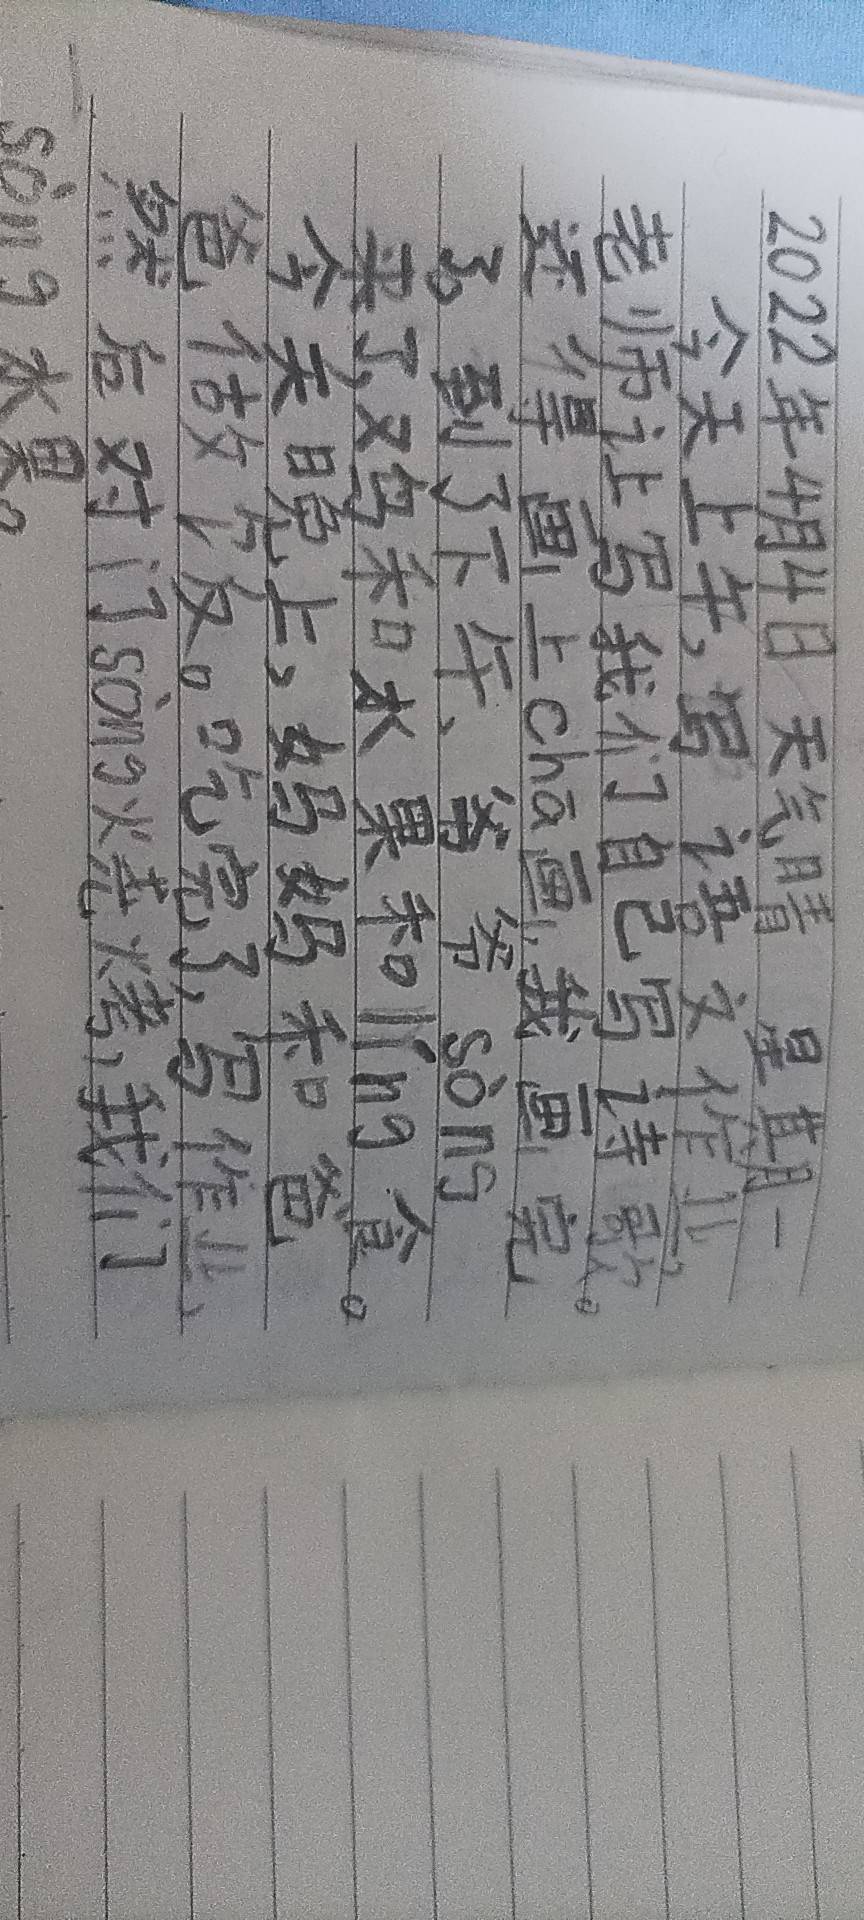 2022年4月4日 天气晴 星期一
今天上午、写语文作业,
老师让写我们自己写诗歌。
还得画上chā画,我画完
了到了下午、爷爷sòng
来了,又鸟和水果和líng食。
今天晚上、妈妈和爸
爸做饭。吃完了,写作业、
然后对门sòng烧烤,我们
sòng水果。